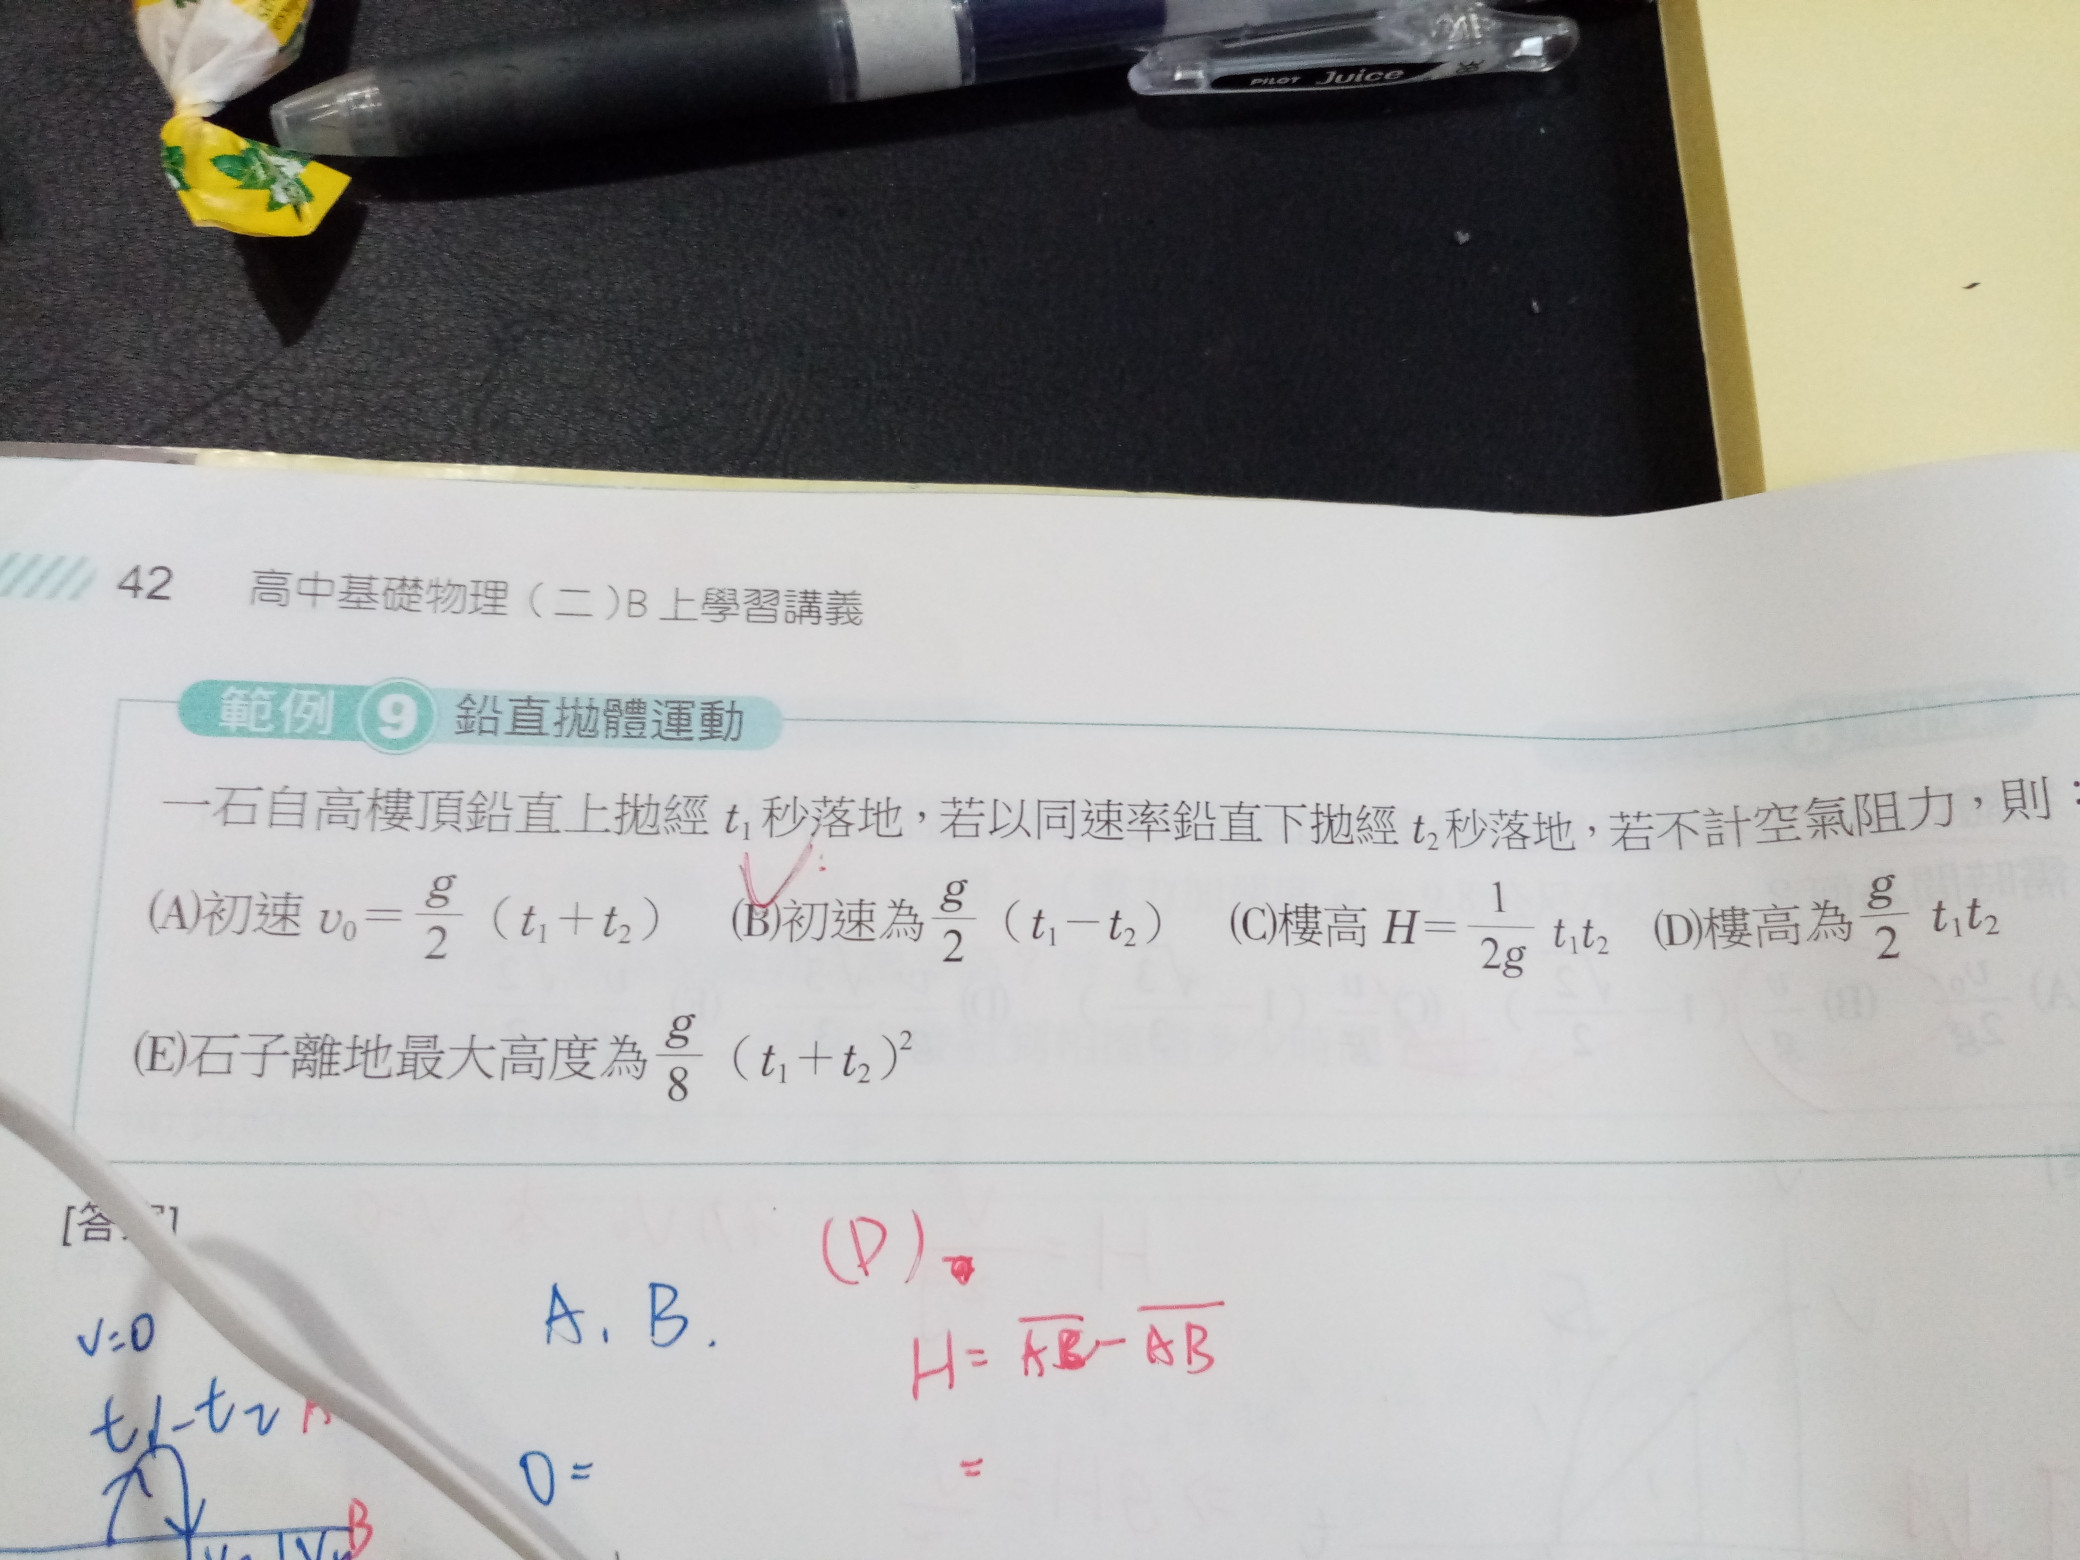 PILOT Juice 38
42 高中基礎物理（二）B 上學習講義
範例 9 鉛直拋體運動
一石自高樓頂鉛直上拋經 t₁ 秒落地，若以同速率鉛直下拋經 t₂ 秒落地，若不計空氣阻力，則：
(A)初速 v₀＝g/2（t₁＋t₂） (B)初速為 g/2（t₁－t₂） (C)樓高 H＝1/2g t₁t₂ (D)樓高為 g/2 t₁t₂
(E)石子離地最大高度為 g/8（t₁＋t₂）²
[答
(D)
A. B.
H = AB - AB
v=0
t1-t2 A
0 =
=
B